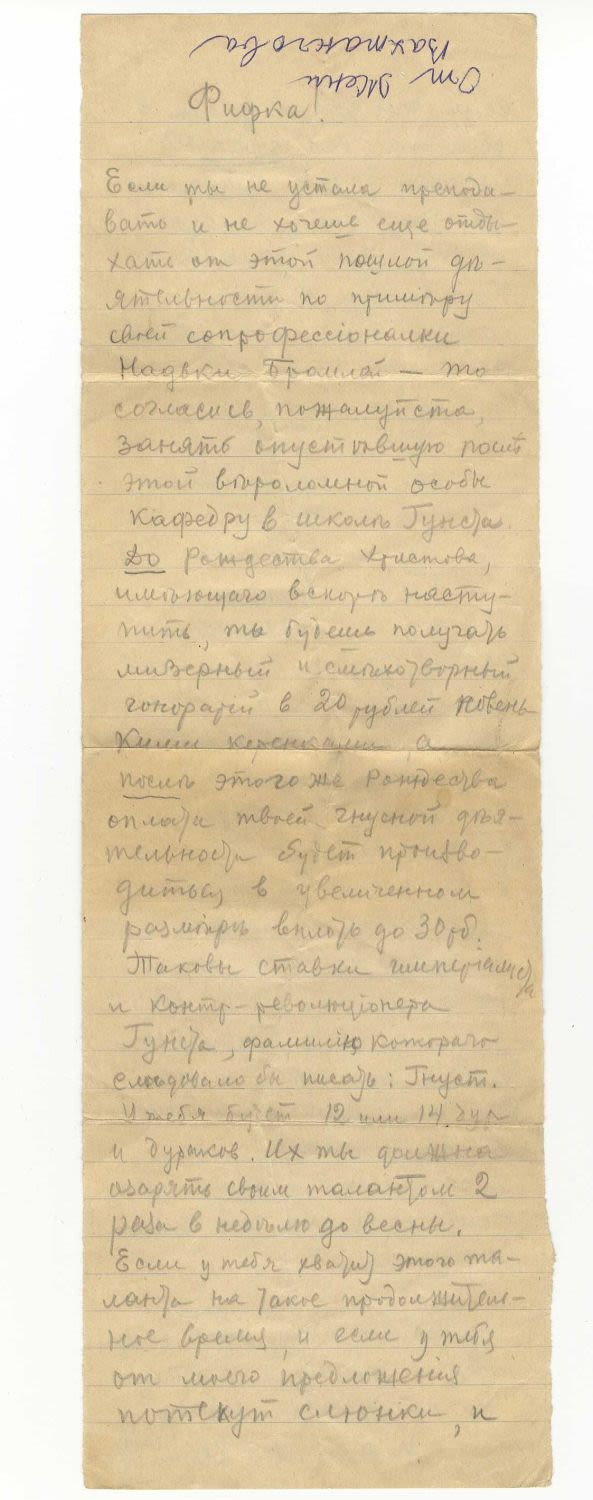 От Жени
Вахтангова
Фифка!
Если ты не устала препода-
вать и не хочешь еще отды-
хать от этой пошлой дѣ-
ятельности по примѣру
своей сопрофессіоналки
Надьки Бромлей — то
согласись, пожалуйста,
занять опустѣвшую послѣ
этой вѣроломной особы
кафедру в школѣ Гунста.
До Рождества Христова,
имѣющаго вскорѣ насту-
пить, ты будешь получать
мизерный и смѣхотворный
гонорарій в 20 рублей новень
кими керенками, а
послѣ этого же Рождества
оплата твоей гнусной дѣя-
тельности будет произво-
диться в увеличенном
размѣрѣ вплоть до 30 рб.
Таковы ставки имперіалиста
и контр-революціонера
Гунста, фамилію котораго
слѣдовало бы писать: Гнуст.
У тебя будет 12 или 14 дур
и дураков. Их ты должна
озарять своим талантом 2
раза в недѣлю до весны.
Если у тебя хватит этого та-
ланта на такое продолжитель-
ное время, и если у тебя
от моего предложенія
потекут слюнки, и